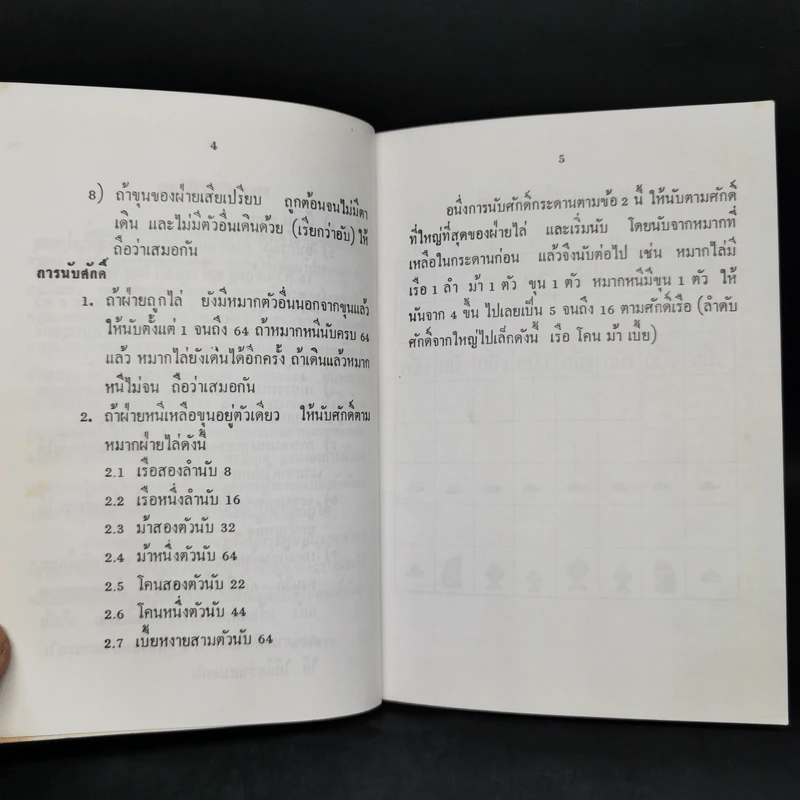 4
8) ถ้าขุนของฝ่ายเสียเปรียบ ถูกต้อนจนไม่มีตา
เดิน และไม่มีตัวอื่นเดินด้วย (เรียกว่าอับ) ให้
ถือว่าเสมอกัน
การนับศักดิ์
1. ถ้าฝ่ายถูกไล่ ยังมีหมากตัวอื่นนอกจากขุนแล้ว
ให้นับตั้งแต่ 1 จนถึง 64 ถ้าหมากหนีนับครบ 64
แล้ว หมากไล่ยังเดินได้อีกครั้ง ถ้าเดินแล้วหมาก
หนีไม่จน ถือว่าเสมอกัน
2. ถ้าฝ่ายหนีเหลือขุนอยู่ตัวเดียว ให้นับศักดิ์ตาม
หมากฝ่ายไล่ดังนี้
2.1 เรือสองลำนับ 8
2.2 เรือหนึ่งลำนับ 16
2.3 ม้าสองตัวนับ 32
2.4 ม้าหนึ่งตัวนับ 64
2.5 โคนสองตัวนับ 22
2.6 โคนหนึ่งตัวนับ 44
2.7 เบี้ยหงายสามตัวนับ 64
5
อนึ่งการนับศักดิ์กระดานตามข้อ 2 นี้ ให้นับตามศักดิ์
ที่ใหญ่ที่สุดของฝ่ายไล่ และเริ่มนับ โดยนับจากหมากที่
เหลือในกระดานก่อน แล้วจึงนับต่อไป เช่น หมากไล่มี
เรือ 1 ลำ ม้า 1 ตัว ขุน 1 ตัว หมากหนีมีขุน 1 ตัว ให้
นับจาก 4 ขึ้น ไปเลยเป็น 5 จนถึง 16 ตามศักดิ์เรือ (ลำดับ
ศักดิ์จากใหญ่ไปเล็กดังนี้ เรือ โคน ม้า เบี้ย)